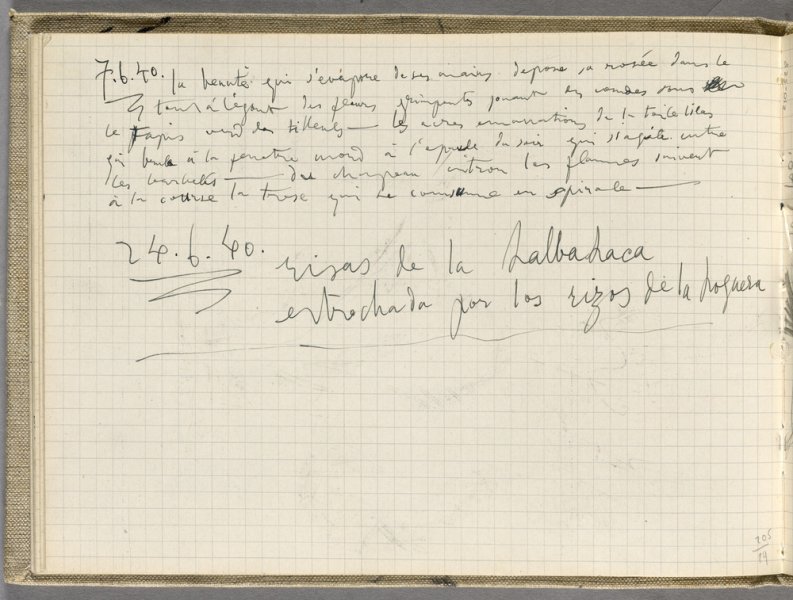 7.6.40. la beauté qui s'évapore de ses mains dépose sa rosée dans le
des fleurs grimpants jouant en
le tapis vert des tilleuls — les acres émanations de la toile lilas
qui à la fenêtre mord à du soir qui s'agite entre
les — du chapeau citron les flammes suivent
à la course la tresse qui se consume en spirale —
24.6.40.
risas de la halbahaca
estrochada por los rizos de la hoguera
205
14